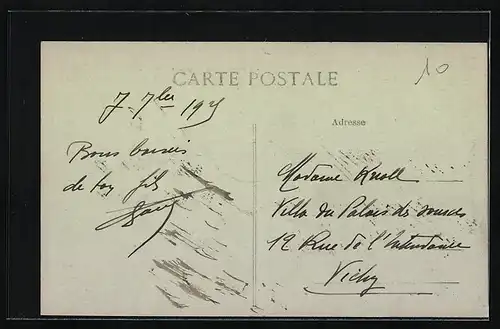 10
CARTE POSTALE
7 - 7bre 1925
Adresse
Bons baisers
de ton fils
Madame Knoll
Villa du Palais des sources
12 Rue de l'Intendance
Vichy